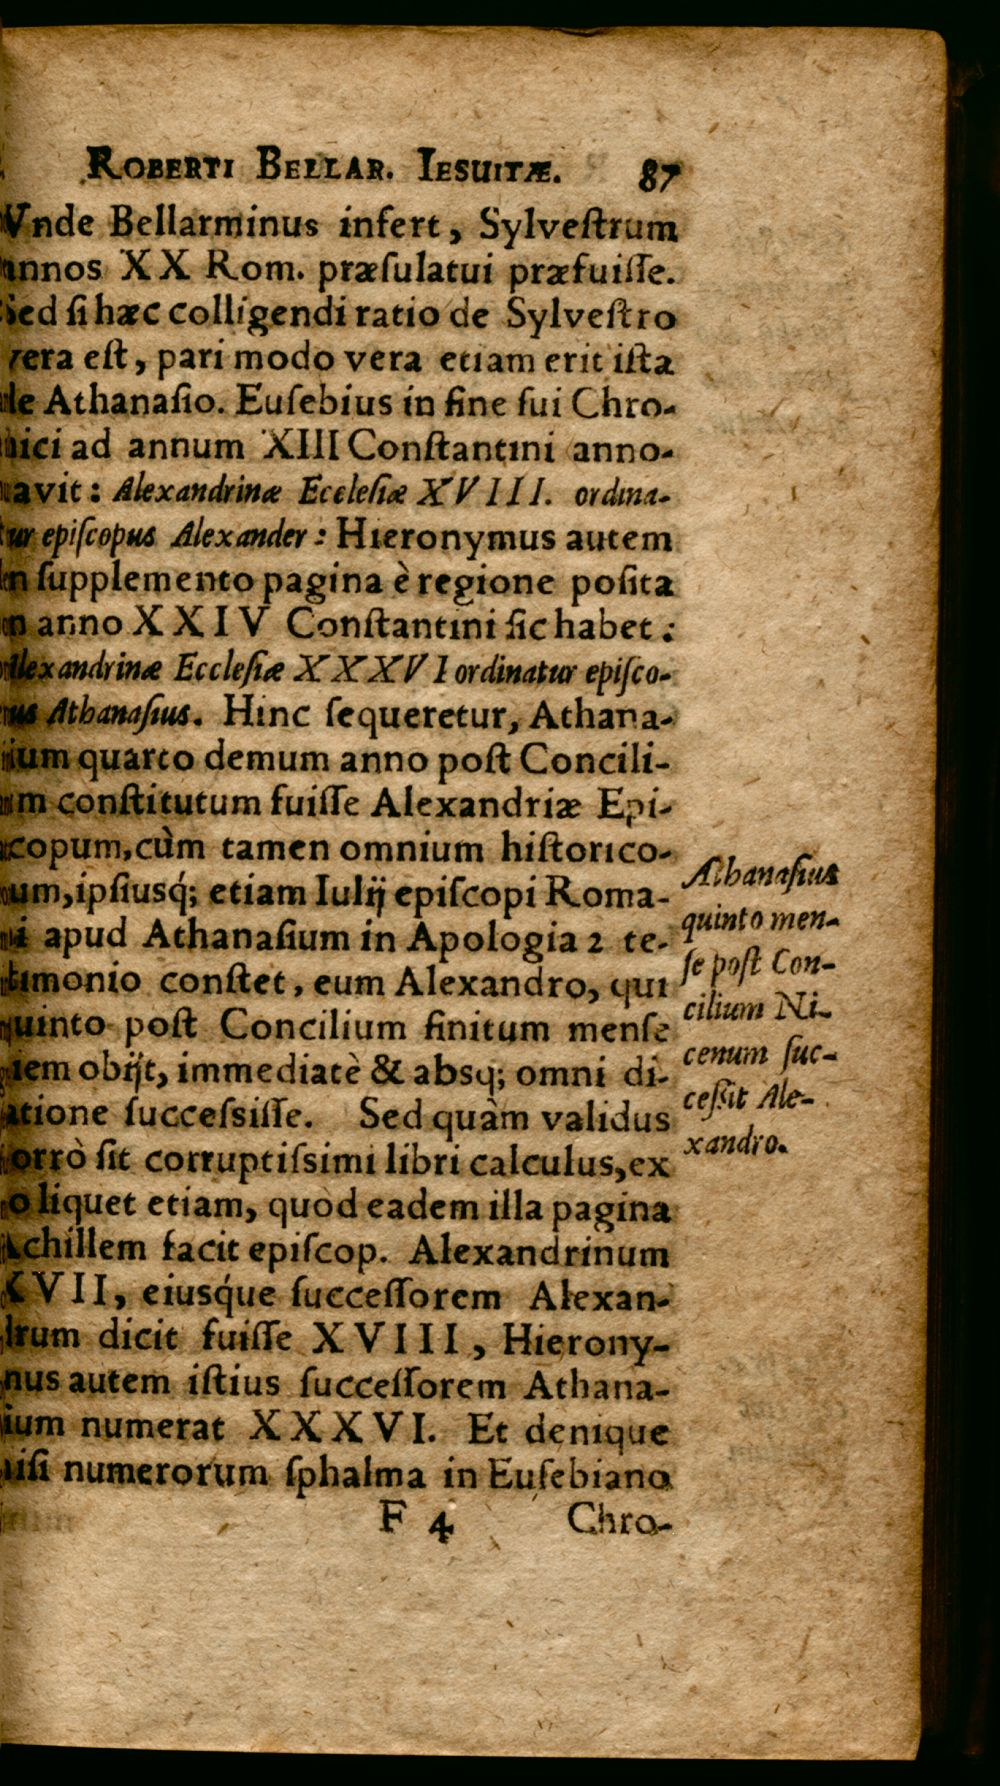 ROBERTI BELLAR. IESUITÆ. 87
Vnde Bellarminus infert, Sylveſtrum
annos XX Rom. præſulatui præfuiſſe.
Sed ſi hæc colligendi ratio de Sylveſtro
vera eſt, pari modo vera etiam erit iſta
de Athanaſio. Euſebius in fine ſui Chro-
nici ad annum XIII Conſtantini anno-
tavit: Alexandrinæ Eccleſiæ XVIII. ordina-
tur epiſcopus Alexander: Hieronymus autem
in ſupplemento pagina è regione poſita
in anno XXIV Conſtantini ſic habet:
Alexandrinæ Eccleſiæ XXXVI ordinatur epiſco-
pus Athanaſius. Hinc ſequeretur, Athana-
ſium quarto demum anno poſt Concili-
um conſtitutum fuiſſe Alexandriæ Epi-
ſcopum, cùm tamen omnium hiſtorico-
rum, ipſiusq́; etiam Iulij epiſcopi Roma-
ni apud Athanaſium in Apologia 2 te-
ſtimonio conſtet, eum Alexandro, qui
quinto poſt Concilium finitum menſe
diem obijt, immediatè & absq; omni di-
latione ſucceſsiſſe. Sed quàm validus
porrò ſit corruptiſsimi libri calculus, ex
eo liquet etiam, quòd eadem illa pagina
Achillem facit epiſcop. Alexandrinum
XVII, eiusq́ue ſucceſſorem Alexan-
drum dicit fuiſſe XVIII, Hierony-
mus autem iſtius ſucceſſorem Athana-
ſium numerat XXXVI. Et denique
niſi numerorum ſphalma in Euſebiano
F 4 Chro-
Athanaſius
quinto men-
ſe poſt Con-
cilium Ni-
cenum ſuc-
ceſsit Ale-
xandro.